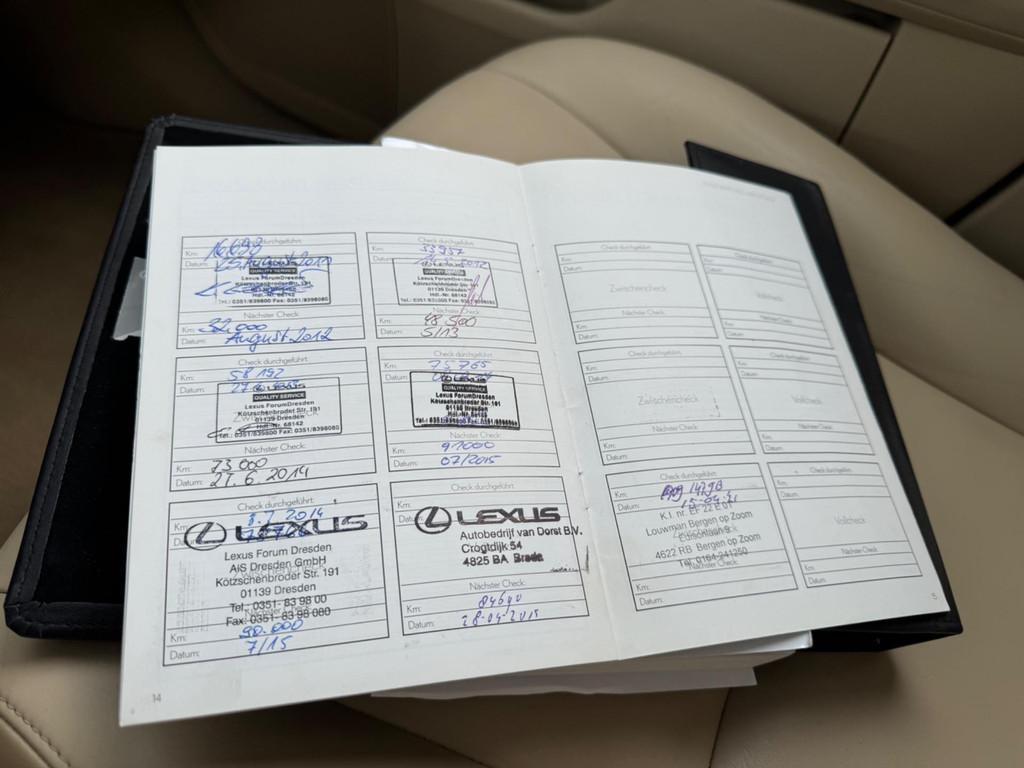 Check durchgeführt:
Km: 16.698
Datum: 25. August 2011
QUALITY SERVICE
Lexus ForumDresden
Kötzschenbroder Str. 191
01139 Dresden
Hdl.-Nr. 68142
Tel.: 0351/839800 Fax: 0351/8398080
Nächster Check:
Km: 32.000
Datum: August 2012
Check durchgeführt:
Km:
Datum:
QUALITY SERVICE
Lexus ForumDresden
Kötzschenbroder Str. 191
01139 Dresden
Hdl.-Nr. 68142
Tel.: 0351/839800 Fax: 0351/8398080
Nächster Check:
Km: 48.500
Datum: 5/13
Check durchgeführt:
Km: 58 192
Datum:
LEXUS
QUALITY SERVICE
Lexus ForumDresden
Kötzschenbroder Str. 191
01139 Dresden
Hdl.-Nr. 68142
Tel.: 0351/839800 Fax: 0351/8398080
Nächster Check:
Km: 73.000
Datum: 27.6.2014
Check durchgeführt:
Km: 75.765
Datum:
LEXUS
QUALITY SERVICE
Lexus ForumDresden
Kötzschenbroder Str. 191
01139 Dresden
Hdl.-Nr. 68142
Tel.: 0351/839800 Fax: 0351/8398080
Nächster Check:
Km: 91000
Datum: 07/2015
Check durchgeführt:
Km: 8.7.2014
Datum:
LEXUS
Lexus Forum Dresden
AIS Dresden GmbH
Kötzschenbroder Str. 191
01139 Dresden
Tel.: 0351- 83 98 00
Fax: 0351- 83 98 080
Nächster Check:
Km: 90.000
Datum: 7/15
Check durchgeführt:
Km:
Datum:
LEXUS
Autobedrijf van Dorst B.V.
Crogtdijk 54
4825 BA Breda
Nächster Check:
Km: 84640
Datum: 28-04-2015
14
Check durchgeführt:
Km:
Datum:
Zwischencheck
Nächster Check:
Km:
Datum:
Check durchgeführt:
Km:
Datum:
Vollcheck
Nächster Check:
Km:
Datum:
Check durchgeführt:
Km:
Datum:
Zwischencheck
Nächster Check:
Km:
Datum:
Check durchgeführt:
Km:
Datum:
Vollcheck
Nächster Check:
Km:
Datum:
Check durchgeführt:
Km:
Datum: 15-04-21
K.I. nr.
Louwman Bergen op Zoom
Edisonlaan 9
4622 RB Bergen op Zoom
Tel. 0164-241250
Nächster Check:
Km:
Datum:
Check durchgeführt:
Km:
Datum:
Vollcheck
Nächster Check:
Km:
Datum:
5